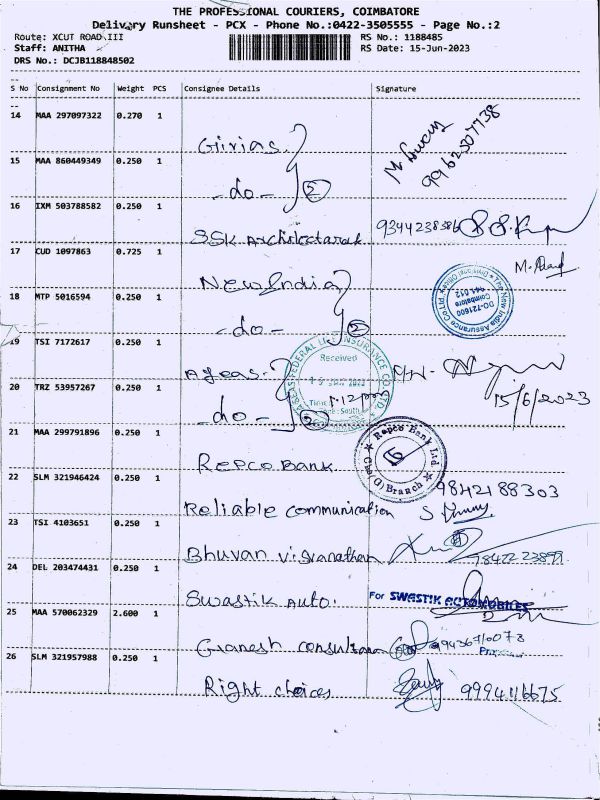 THE PROFESSIONAL COURIERS, COIMBATORE
Delivery Runsheet - PCX - Phone No.:0422-3505555 - Page No.:2
Route: XCUT ROAD III RS No.: 1188485
Staff: ANITHA RS Date: 15-Jun-2023
DRS No.: DCJB118848502
S No Consignment No Weight PCS Consignee Details Signature
14 MAA 297097322 0.270 1 Girias
15 MAA 860449349 0.250 1 - do - 2
16 IXM 503788582 0.250 1 SSK 9344238386
17 CUD 1097863 0.725 1 New India
18 MTP 5016594 0.250 1 - do - 2
The New India Assurance Co.Ltd.
DO-721600
Coimbatore
19 TSI 7172617 0.250 1 Ageas
Received
20 TRZ 53957267 0.250 1 - do - 15/6/2023
21 MAA 299791896 0.250 1 Repco Bank
Repco Bank Ltd
Branch
22 SLM 321946424 0.250 1 Reliable communication 9842188303
23 TSI 4103651 0.250 1 Bhuvan visvanathan
24 DEL 203474431 0.250 1 Swastik Auto. For SWASTIK AUTOMOBILES
25 MAA 570062329 2.600 1 Ganesh
26 SLM 321957988 0.250 1 Right choices 9994116675